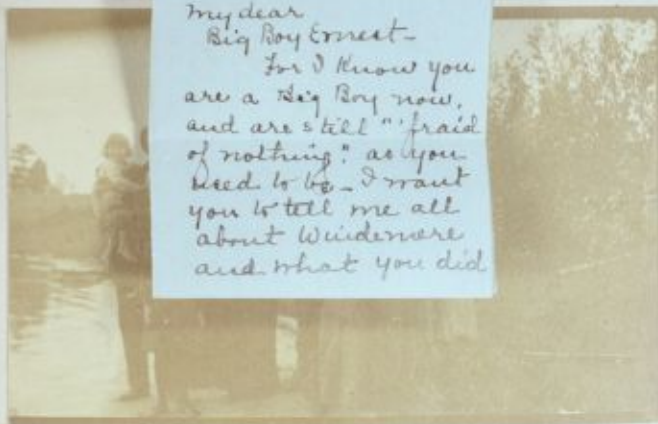 My dear
Big Boy Ernest—
For I know you
are a Big Boy now,
and are still "'fraid
of nothing" as you
used to be— I want
you to tell me all
about Windemere
and what you did